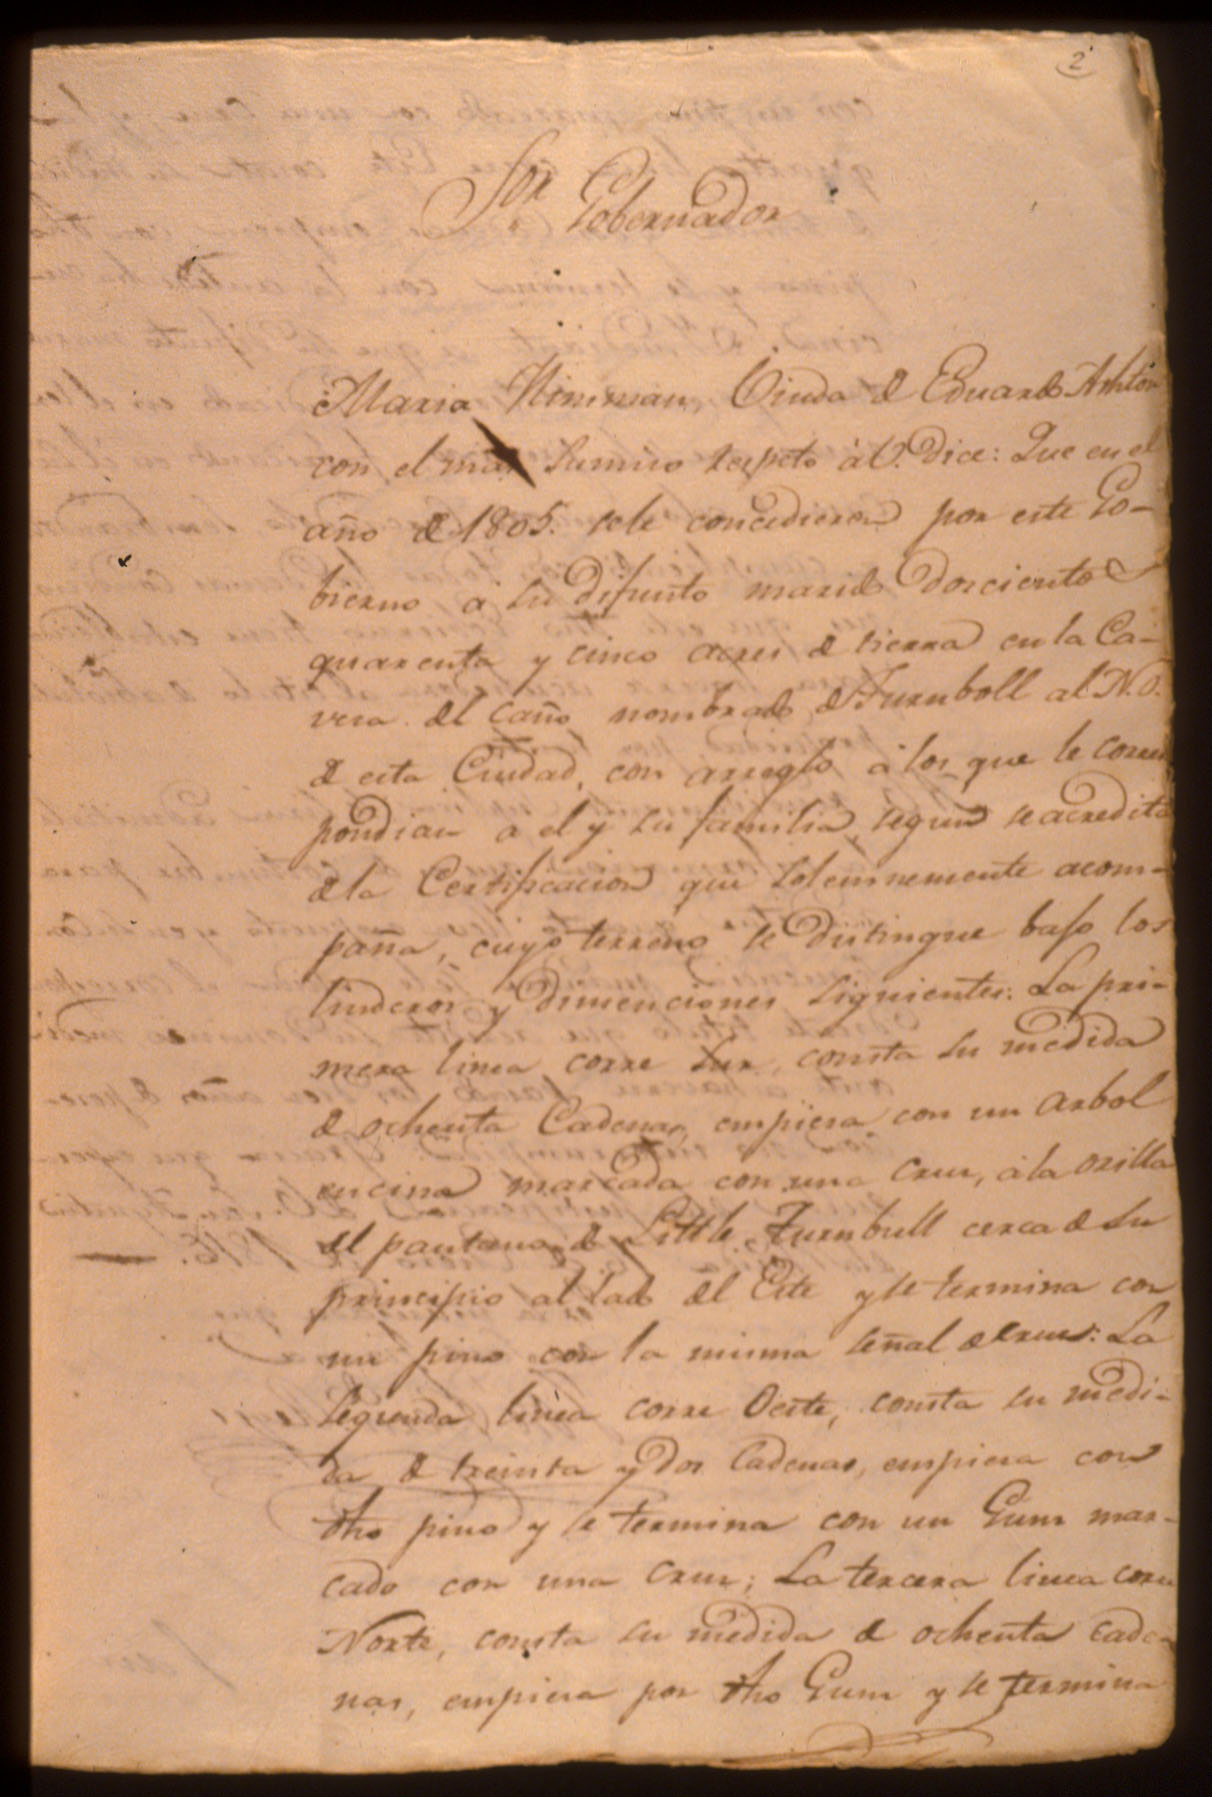 2
Sor Gobernador
Maria Hinsman, Viuda de Eduardo Ashton
con el mas sumiso respeto à V. Dice: Que en el
año de 1805. sele concedieron por este Go-
bierno a su difunto marido Doscientos
quarenta y cinco acres de tierra en la Ca-
vera del Caño nombrado de Turnboll al N.O.
de esta Ciudad, con arreglo à los que le corres
pondian a el y su familia segun se acredita
de la Certificacion que solemnemente acom-
paña, cuyo terreno se distingue bajo los
linderos y dimenciones siguientes: La pri-
mera linea corre Sur, consta su medida
de ochenta Cadenas, empiesa con un arbol
encina marcada con una Crus, à la orilla
del pantano de Little Turnbull cerca de su
principio al lado del Este y se termina con
un pino con la misma señal de crus: La
segunda linea corre Oeste, consta su medi-
da de treinta y dos Cadenas, empiesa con
dho pino y se termina con un Gum mar-
cado con una Crus; La tercera linea corre
Norte, consta su medida de ochenta cade-
nas, empiesa por dho Gum y se termina